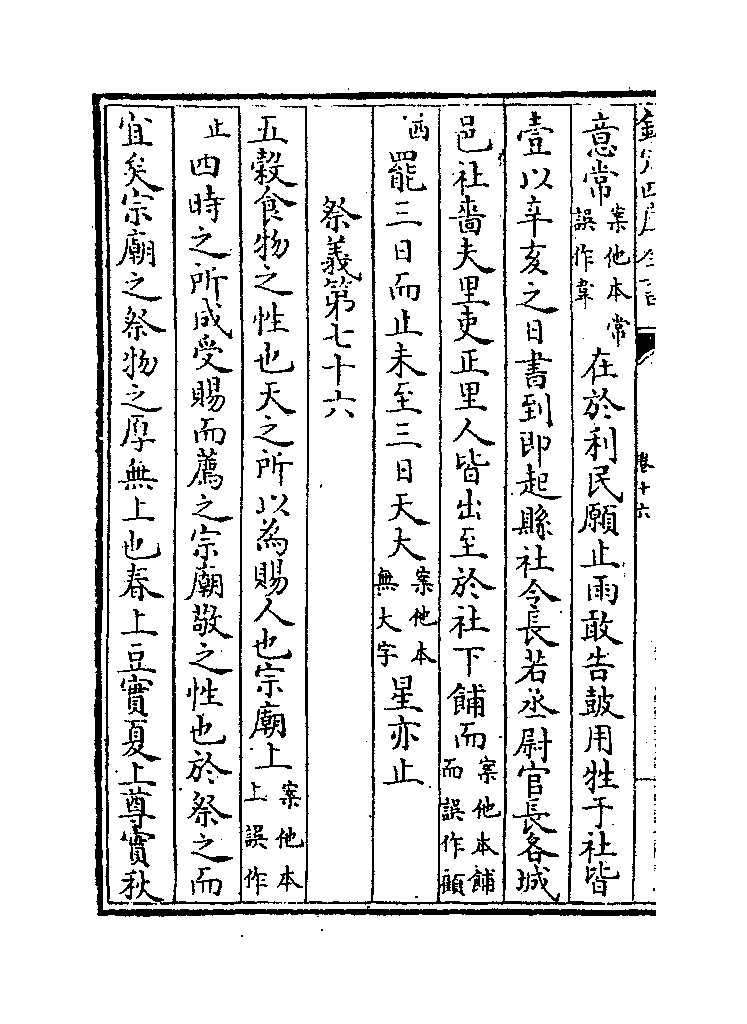 欽定四庫全書
卷十六
意常案他本常誤作韋在於利民願止雨敢告鼓用牲于社皆
壹以辛亥之日書到即起縣社令長若丞尉官長各城
邑社嗇夫里吏正里人皆出至於社下餔而案他本餔而誤作顧
西罷三日而止未至三日天大案他本無大字星亦止
祭義第七十六
五穀食物之性也天之所以為賜人也宗廟上案他本上誤作
止四時之所成受賜而薦之宗廟敬之性也於祭之而
宜矣宗廟之祭物之厚無上也春上豆實夏上尊實秋